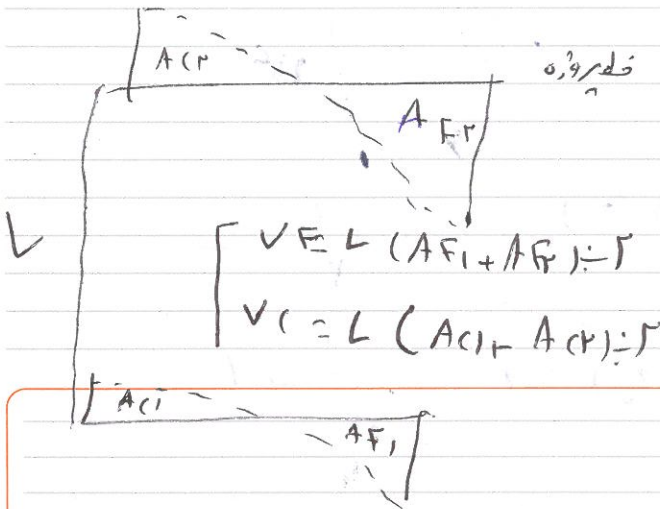 AC۲
A F۲
L
VF = L (AF۱ + AF۲) ÷ ۲
VC = L (AC۱ + AC۲) ÷ ۲
AC۱
AF۱